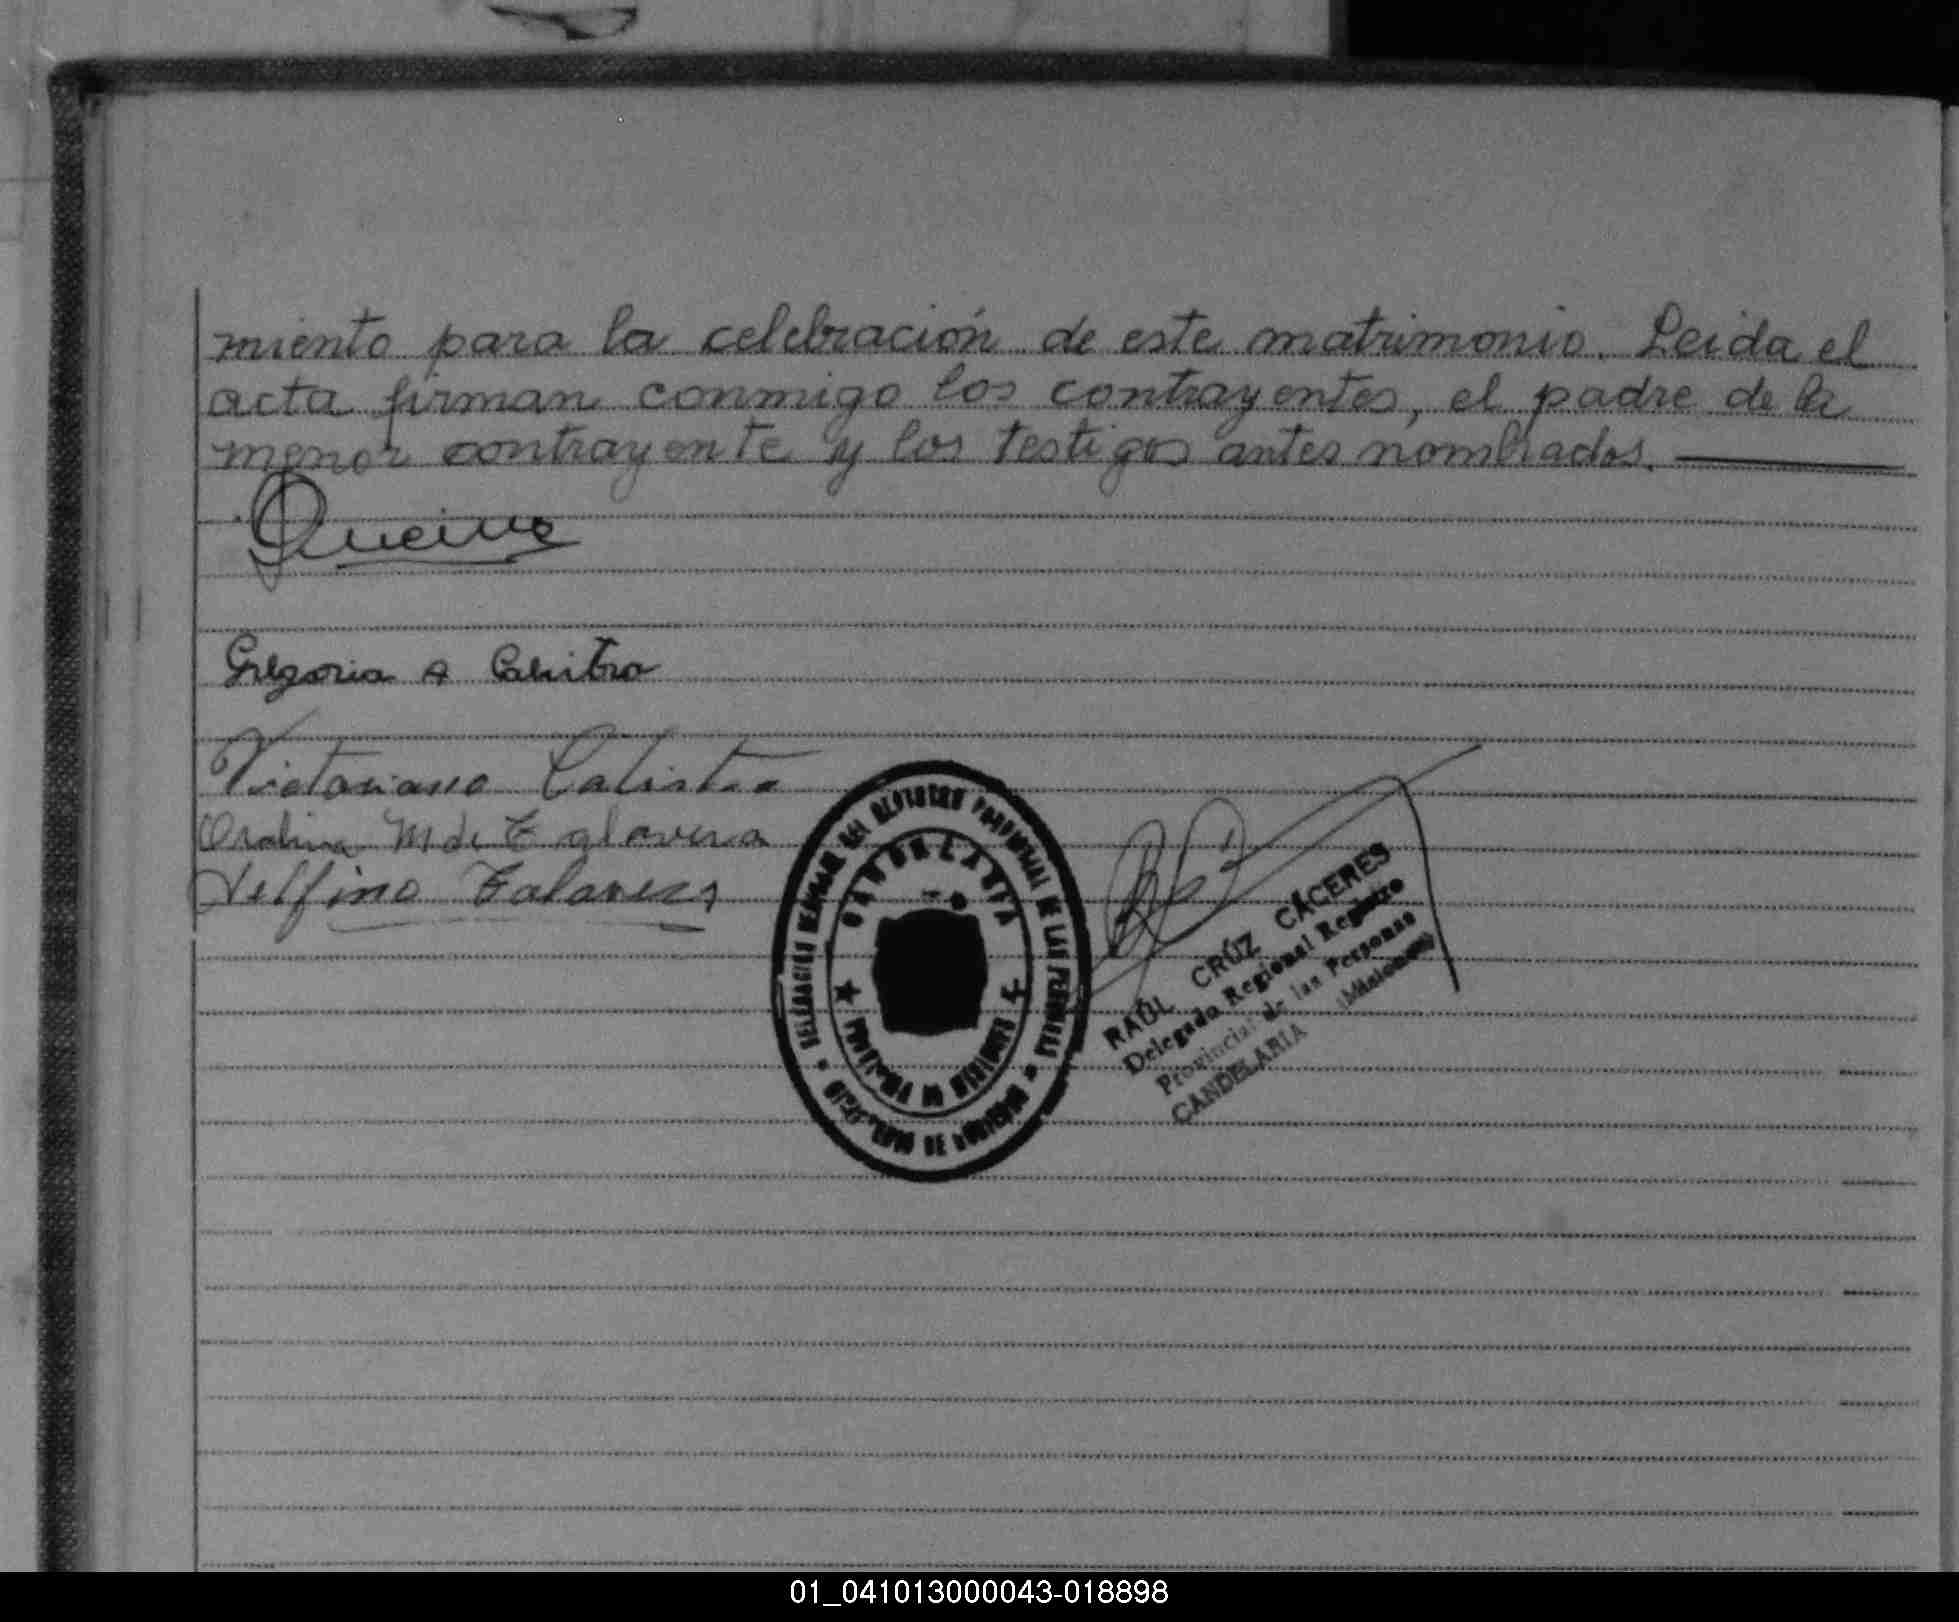 miento para la celebración de este matrimonio. Leida el
acta firman conmigo los contrayentes, el padre de la
menor contrayente y los testigos antes nombrados.
Gregoria A Calistro
Victoriano Calistro
M de Talavera
Delfino Talavera
DELEGACION REGIONAL DEL REGISTRO PROVINCIAL DE LAS PERSONAS
CANDELARIA
PROVINCIA DE MISIONES
RAÚL CRÚZ CÁCERES
Delegado Regional Registro
Provincial de las Personas
CANDELARIA (Misiones)
01_041013000043-018898